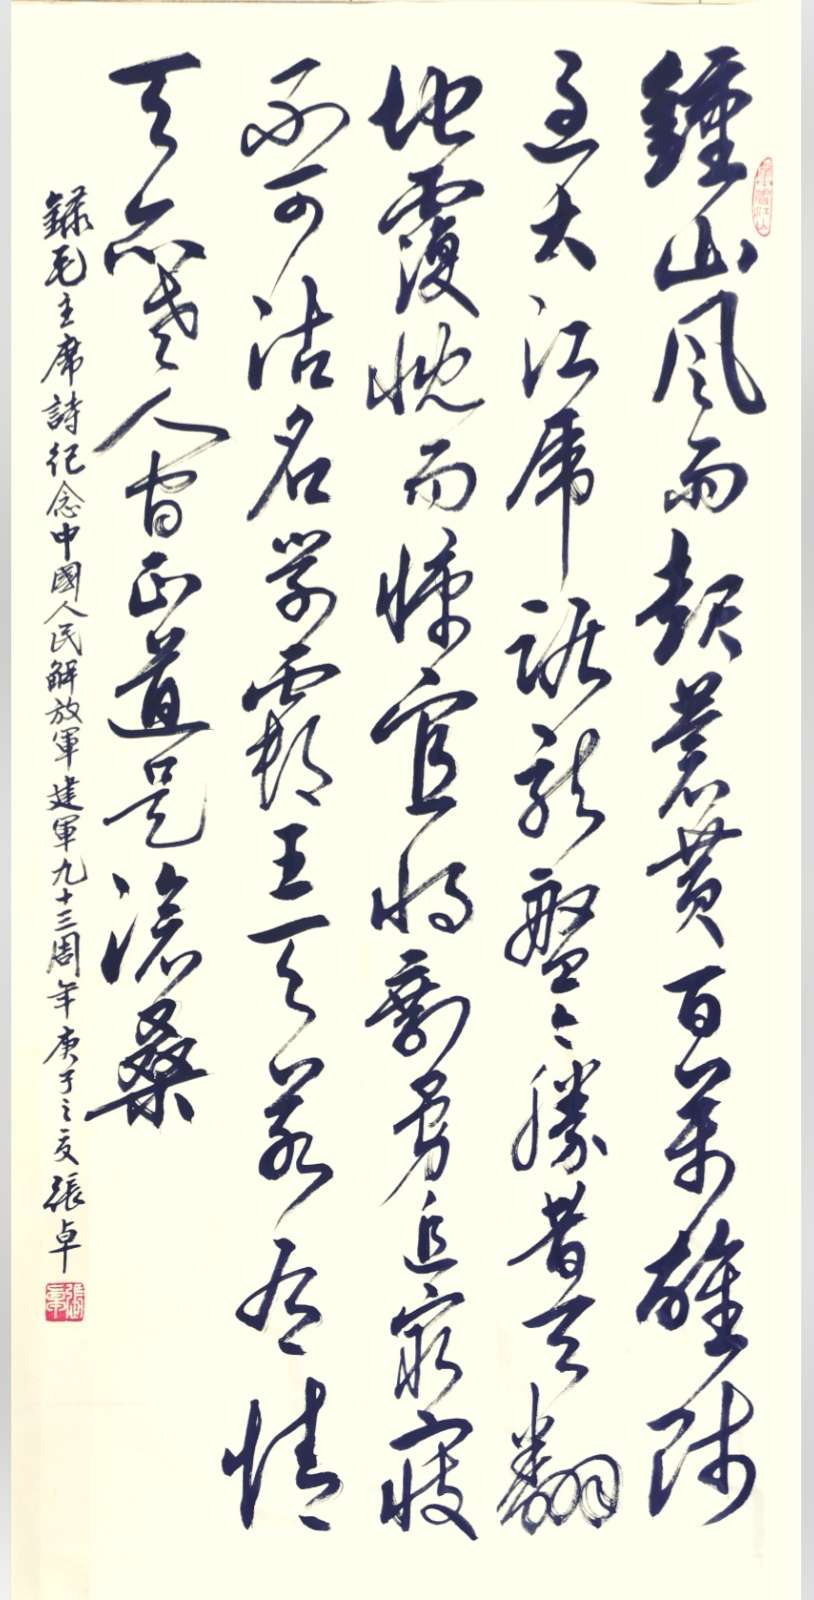 鍾山风雨起蒼黄百萬雄师
過大江虎踞龍盤今勝昔天翻
地覆慨而慷宜將剩勇追窮寇
不可沽名學霸王天若有情
天亦老人间正道是滄桑
録毛主席詩纪念中國人民解放軍建軍九十三周年庚子之夏張卓